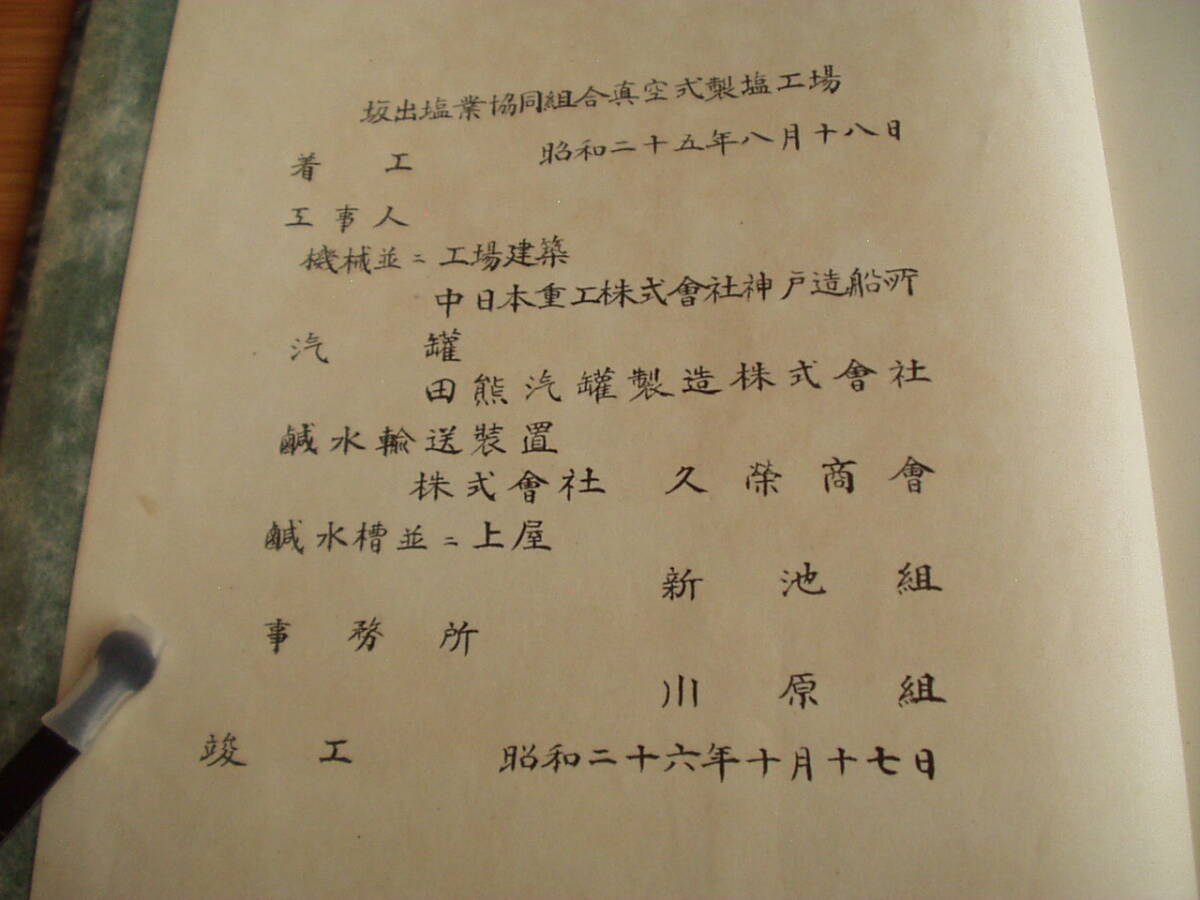 坂出塩業協同組合真空式製塩工場
着工 昭和二十五年八月十八日
工事人
機械並ニ工場建築
中日本重工株式會社神戸造船所
汽罐
田熊汽罐製造株式會社
鹹水輸送裝置
株式會社 久榮商會
鹹水槽並ニ上屋
新池組
事務所
川原組
竣工 昭和二十六年十月十七日